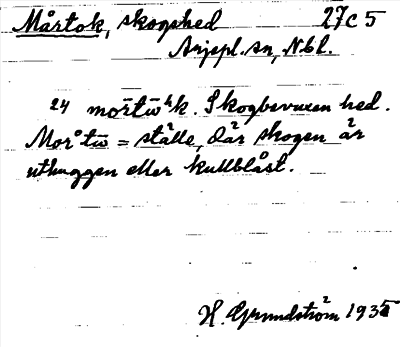 Mårtok, skogshed 27C5
Arjepl. sn, Nbl.
24 mōrtω̄ʰk. Skogbevuxen hed.
Morᵒtω̄ = ställe, där skogen är
uthuggen eller kullblåst.
H. Grundström 1935